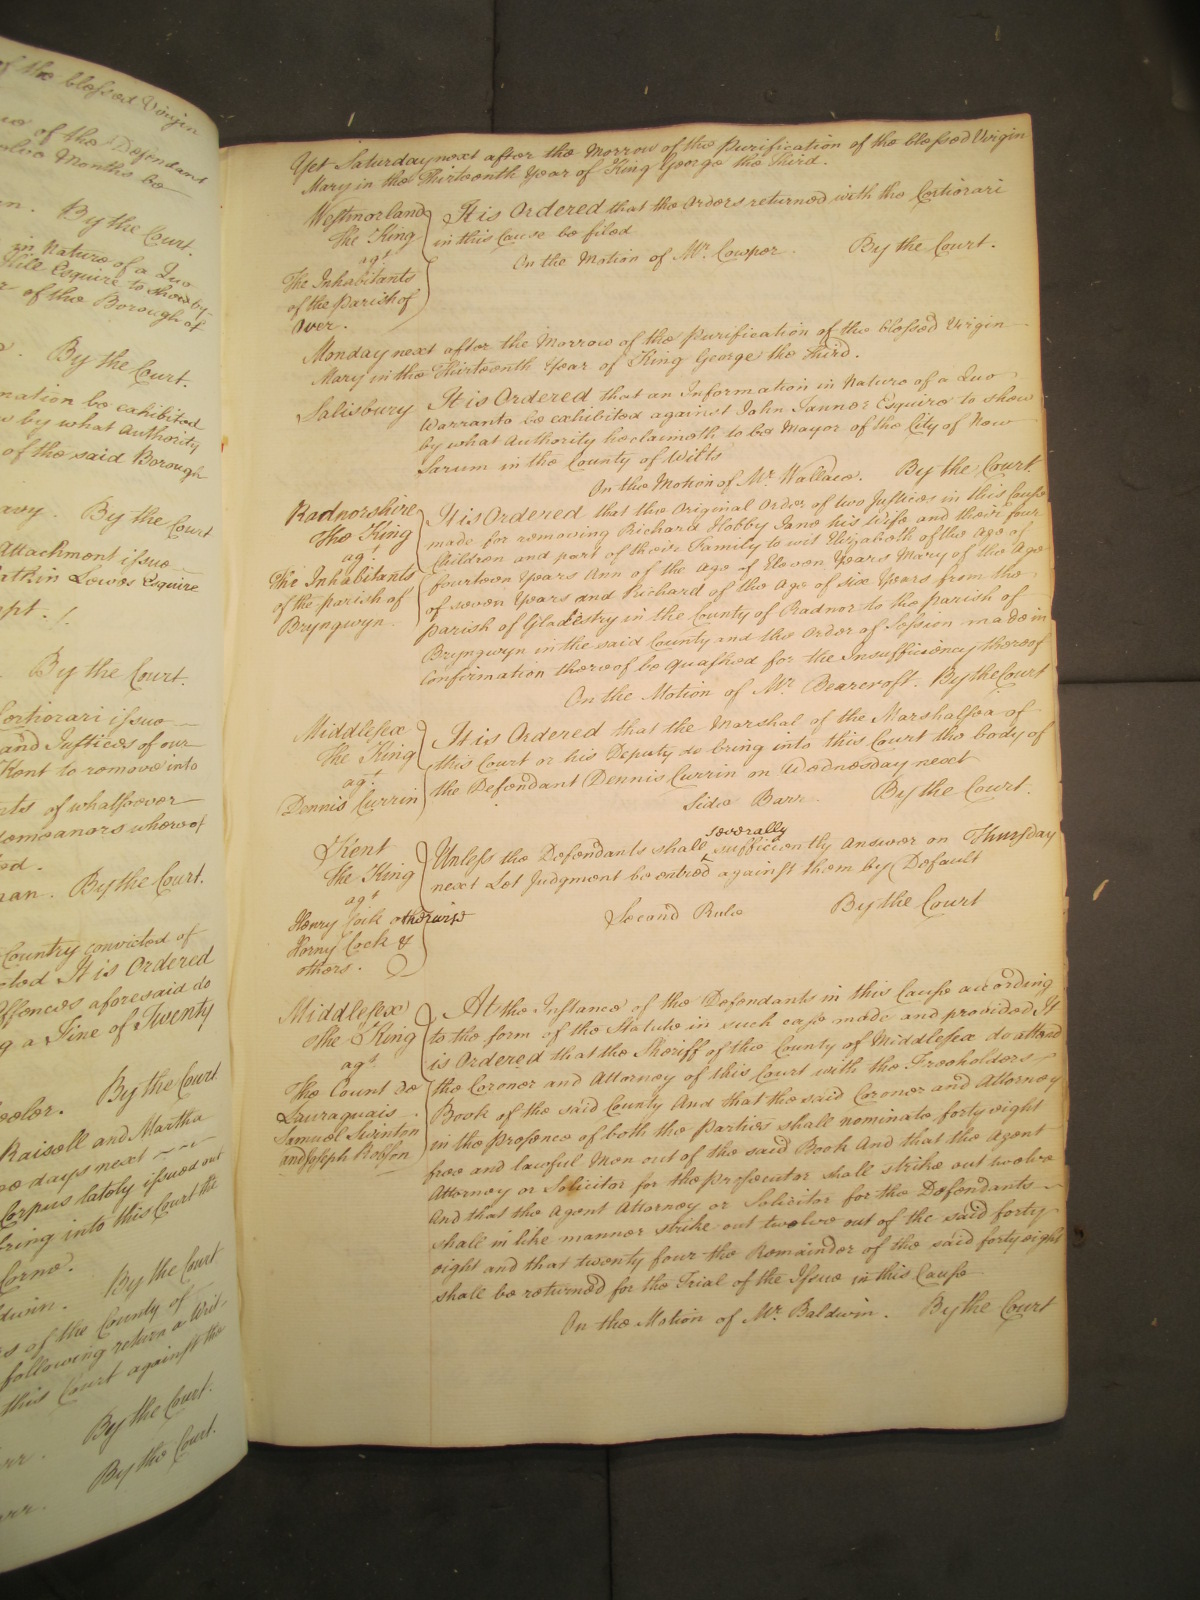 of the blessed Virgin
of the Defendant
Months be
By the Court.
in Nature of a Quo
Hill Esquire to shew by
of the Borough of
By the Court.
be exhibited
by what Authority
of the said Borough
By the Court
Attachment issue
Lowes Esquire
By the Court.
Certiorari issue
and Justices of our
Kent to remove into
of whatsoever
whereof
By the Court.
Country convicted of
It is Ordered
Offences aforesaid do
a Fine of Twenty
By the Court
Raisell and Martha
days next
Corpus lately issued out
bring into this Court the
By the Court
of the County of
following return a Writ
this Court against the
By the Court.
By the Court.
Yet Saturday next after the Morrow of the Purification of the blessed Virgin
Mary in the Thirteenth Year of King George the Third.
Westmorland It is Ordered that the Orders returned with the Certiorari
The King in this Cause be filed
agt. On the Motion of Mr. Cowper. By the Court.
The Inhabitants
of the Parish of
Over.
Monday next after the Morrow of the Purification of the blessed Virgin
Mary in the Thirteenth Year of King George the Third.
Salisbury It is Ordered that an Information in Nature of a Quo
Warranto be exhibited against John Tanner Esquire to shew
by what Authority he claimeth to be Mayor of the City of New
Sarum in the County of Wilts
On the Motion of Mr. Wallace. By the Court.
Radnorshire It is Ordered that the Original Order of two Justices in this Cause
The King made for removing Richard Hobby Jane his Wife and their four
agt. Children and part of their Family to wit Elizabeth of the Age of
The Inhabitants fourteen Years Ann of the Age of Eleven Years Mary of the Age
of the parish of of seven Years and Richard of the Age of six Years from the
Bryngwyn. parish of Gladestry in the County of Radnor to the parish of
Bryngwyn in the said County and the Order of Session made in
Confirmation thereof be quashed for the Insufficiency thereof
On the Motion of Mr. Bearcroft. By the Court
Middlesex It is Ordered that the Marshal of the Marshalsea of
The King this Court or his Deputy do bring into this Court the body of
agt. the Defendant Dennis Currin on Wednesday next
Dennis Currin Side Barr. By the Court.
Kent Unless the Defendants shall severally sufficiently answer on Thursday
The King next Let Judgment be entred against them by Default
agt.
Henry Coik otherwise Second Rule By the Court
Henry Cock &
others.
Middlesex At the Instance of the Defendants in this Cause according
The King to the form of the Statute in such case made and provided It
agt. is Ordered that the Sheriff of the County of Middlesex do attend
The Count de the Coroner and Attorney of this Court with the Freeholders
Lauraguais Book of the said County And that the said Coroner and Attorney
Samuel Swinton in the presence of both the Parties shall nominate forty eight
and Joseph Robson free and lawful Men out of the said Book And that the Agent
Attorney or Solicitor for the prosecutor shall strike out twelve
And that the Agent Attorney or Solicitor for the Defendants
shall in like manner strike out twelve out of the said forty
eight and that twenty four the Remainder of the said forty eight
shall be returned for the Trial of the Issue in this Cause
On the Motion of Mr. Baldwin. By the Court